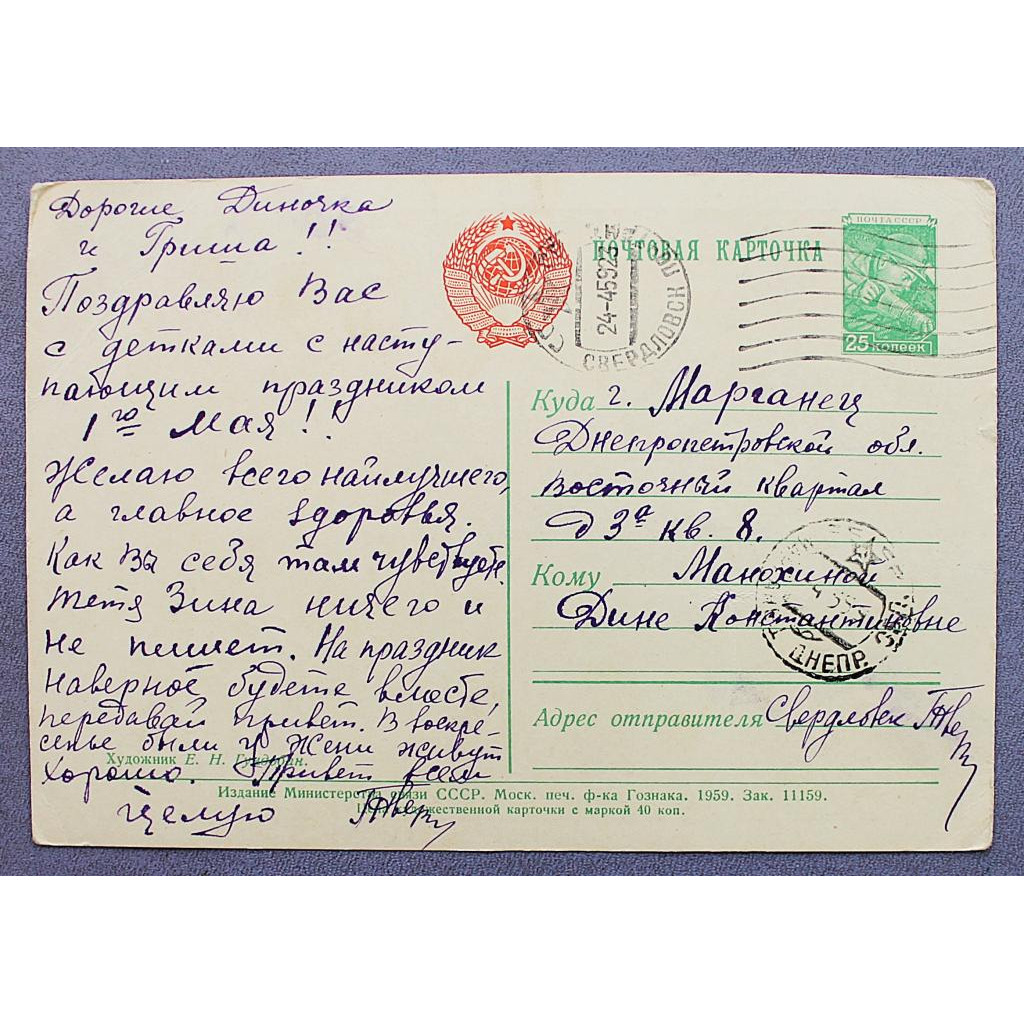 Дорогие Диночка
и Гриша!!
Поздравляю Вас
с детками с насту-
пающим праздником
1го Мая!!
Желаю всего наилучшего,
а главное здоровья.
Как Вы себя там чувствуете.
Тетя Зина ничего и
не пишет. На праздник
наверное будете вместе,
передавай привет. В воскре-
сенье были у Жени живут
хорошо. Привет всем
Целую
ПОЧТОВАЯ КАРТОЧКА
ПОЧТА СССР
25 копеек
24-4 59 23
СВЕРДЛОВСК
Куда г. Марганец
Днепропетровской обл.
Восточный квартал
д 3а кв. 8.
Кому Манохиной
Дине Константиновне
ДНЕПР.
Адрес отправителя Свердловск
Художник Е. Н.
Издание Министерства связи СССР. Моск. печ. ф-ка Гознака. 1959. Зак. 11159.
художественной карточки с маркой 40 коп.